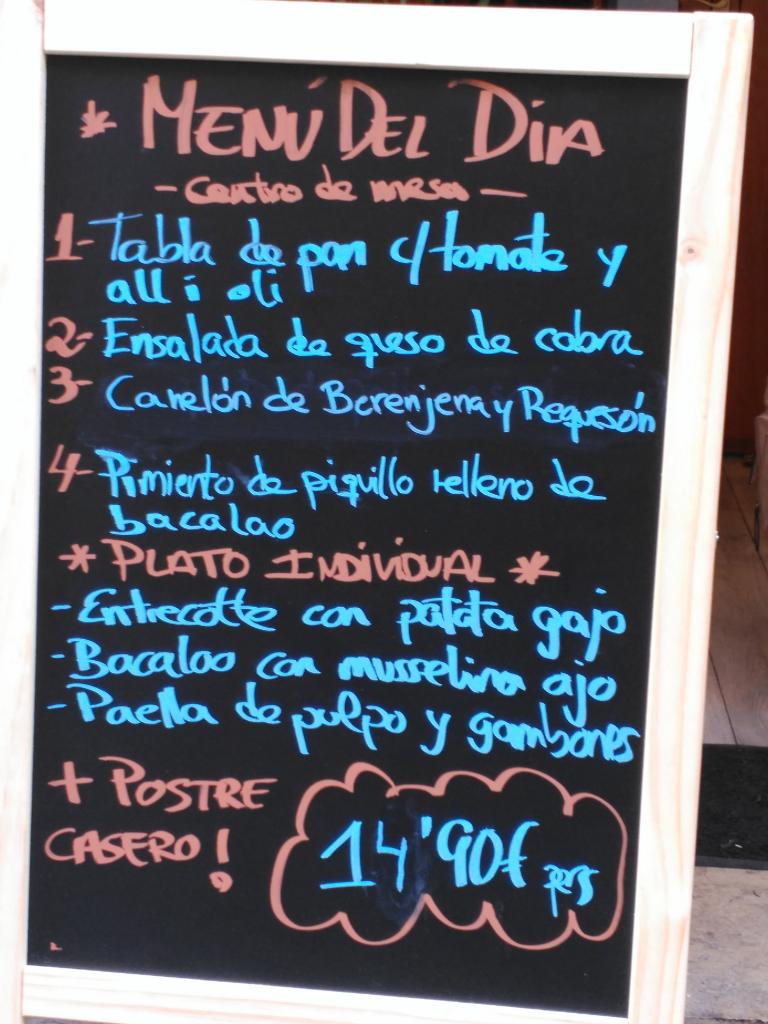 * MENÚ DEL DIA
- Centro de mesa -
1- Tabla de pan c/ tomate y
all i oli
2- Ensalada de queso de cabra
3- Canelón de Berenjena y Requesón
4- Pimiento de piquillo relleno de
bacalao
* PLATO INDIVIDUAL *
- Entrecotte con patata gajo
- Bacalao con musselina ajo
- Paella de pulpo y gambones
+ POSTRE
CASERO!
14'90€ pers